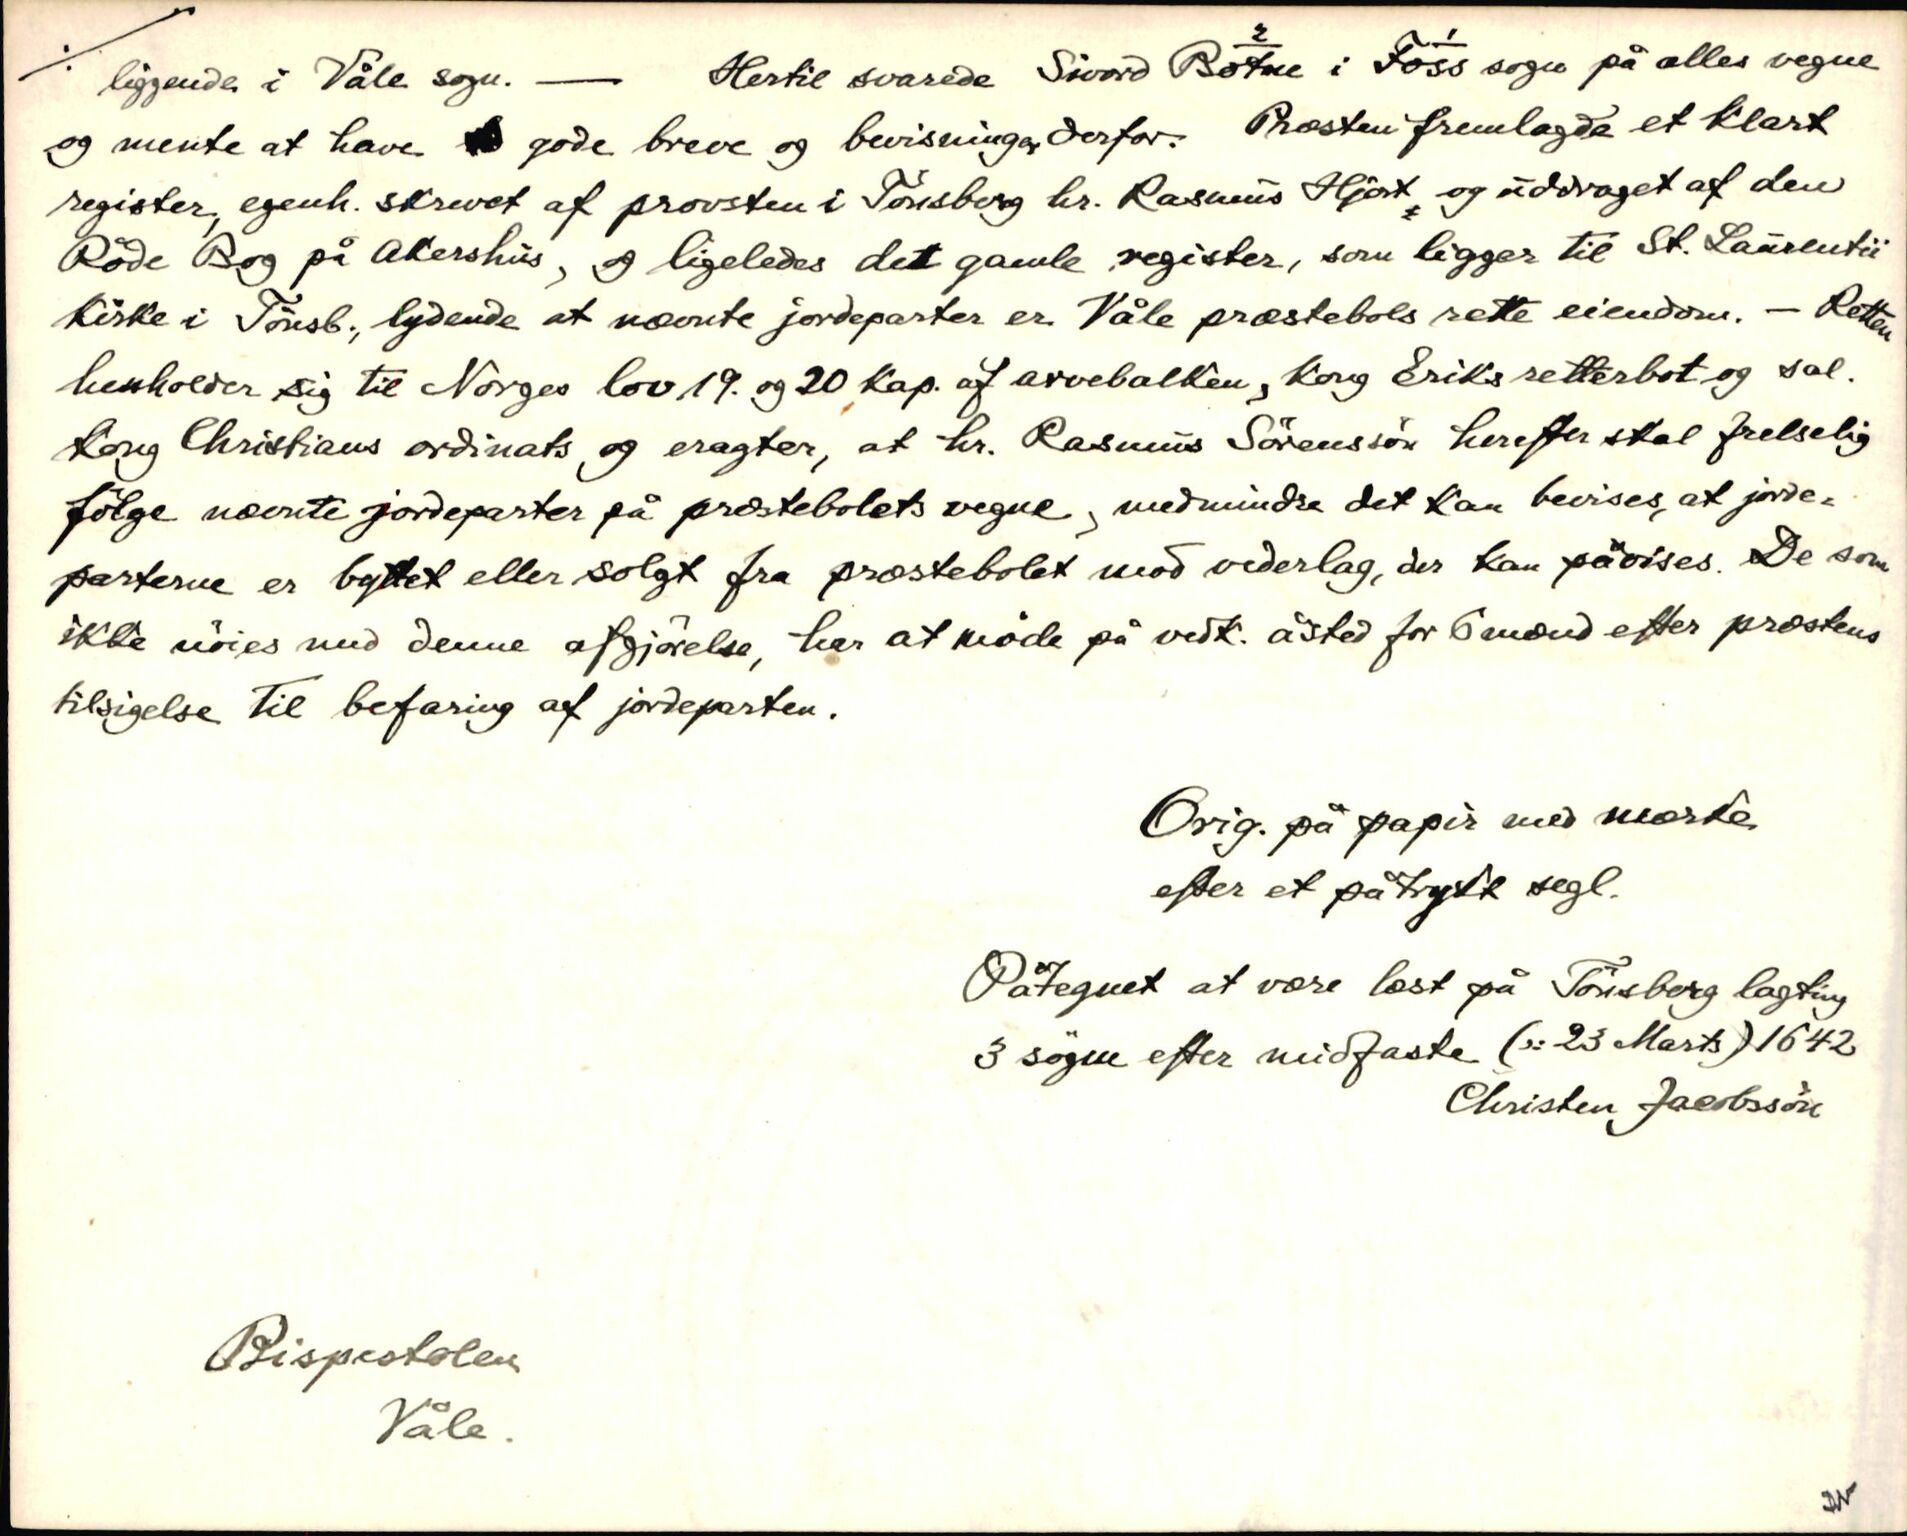 liggende i Våle sogn. — Hertil svarede Sivord Botne i Foss sogn på alles vegne
og mente at have gode breve og bevisninger derfor. Præsten fremlagde et klart
register, egenh. skrevet af provsten i Tönsberg hr. Rasmus Hjort, og uddraget af den
Röde Bog på Akershus, og ligeledes det gamle register, som ligger til St. Laurentii
kirke i Tönsb., lydende at nævnte jordeparter er Våle præstebols rette eiendom. — Retten
henholder sig til Norges lov 19. og 20 kap. af arvebalken, Kong Eriks retterbot og sal.
Kong Christians ordinats og eragter, at hr. Rasmus Sörenssön herefter skal frelselig
fölge nævnte jordeparter på præstebolets vegne, medmindre det kan bevises, at jorde-
parterne er byttet eller solgt fra præstebolet mod vederlag, der kan påvises. De som
ikke nöies med denne afgjörelse, har at möde på vedk. åsted for 6 mænd efter præstens
tilsigelse til befaring af jordeparten.
Orig. på papir med mærke
efter et påtrykt segl.
Påtegnet at være læst på Tönsberg lagting
3 sögne efter midfaste (ɔ: 23 Marts) 1642
Christen Jacobssön
Bispestolen
Våle.